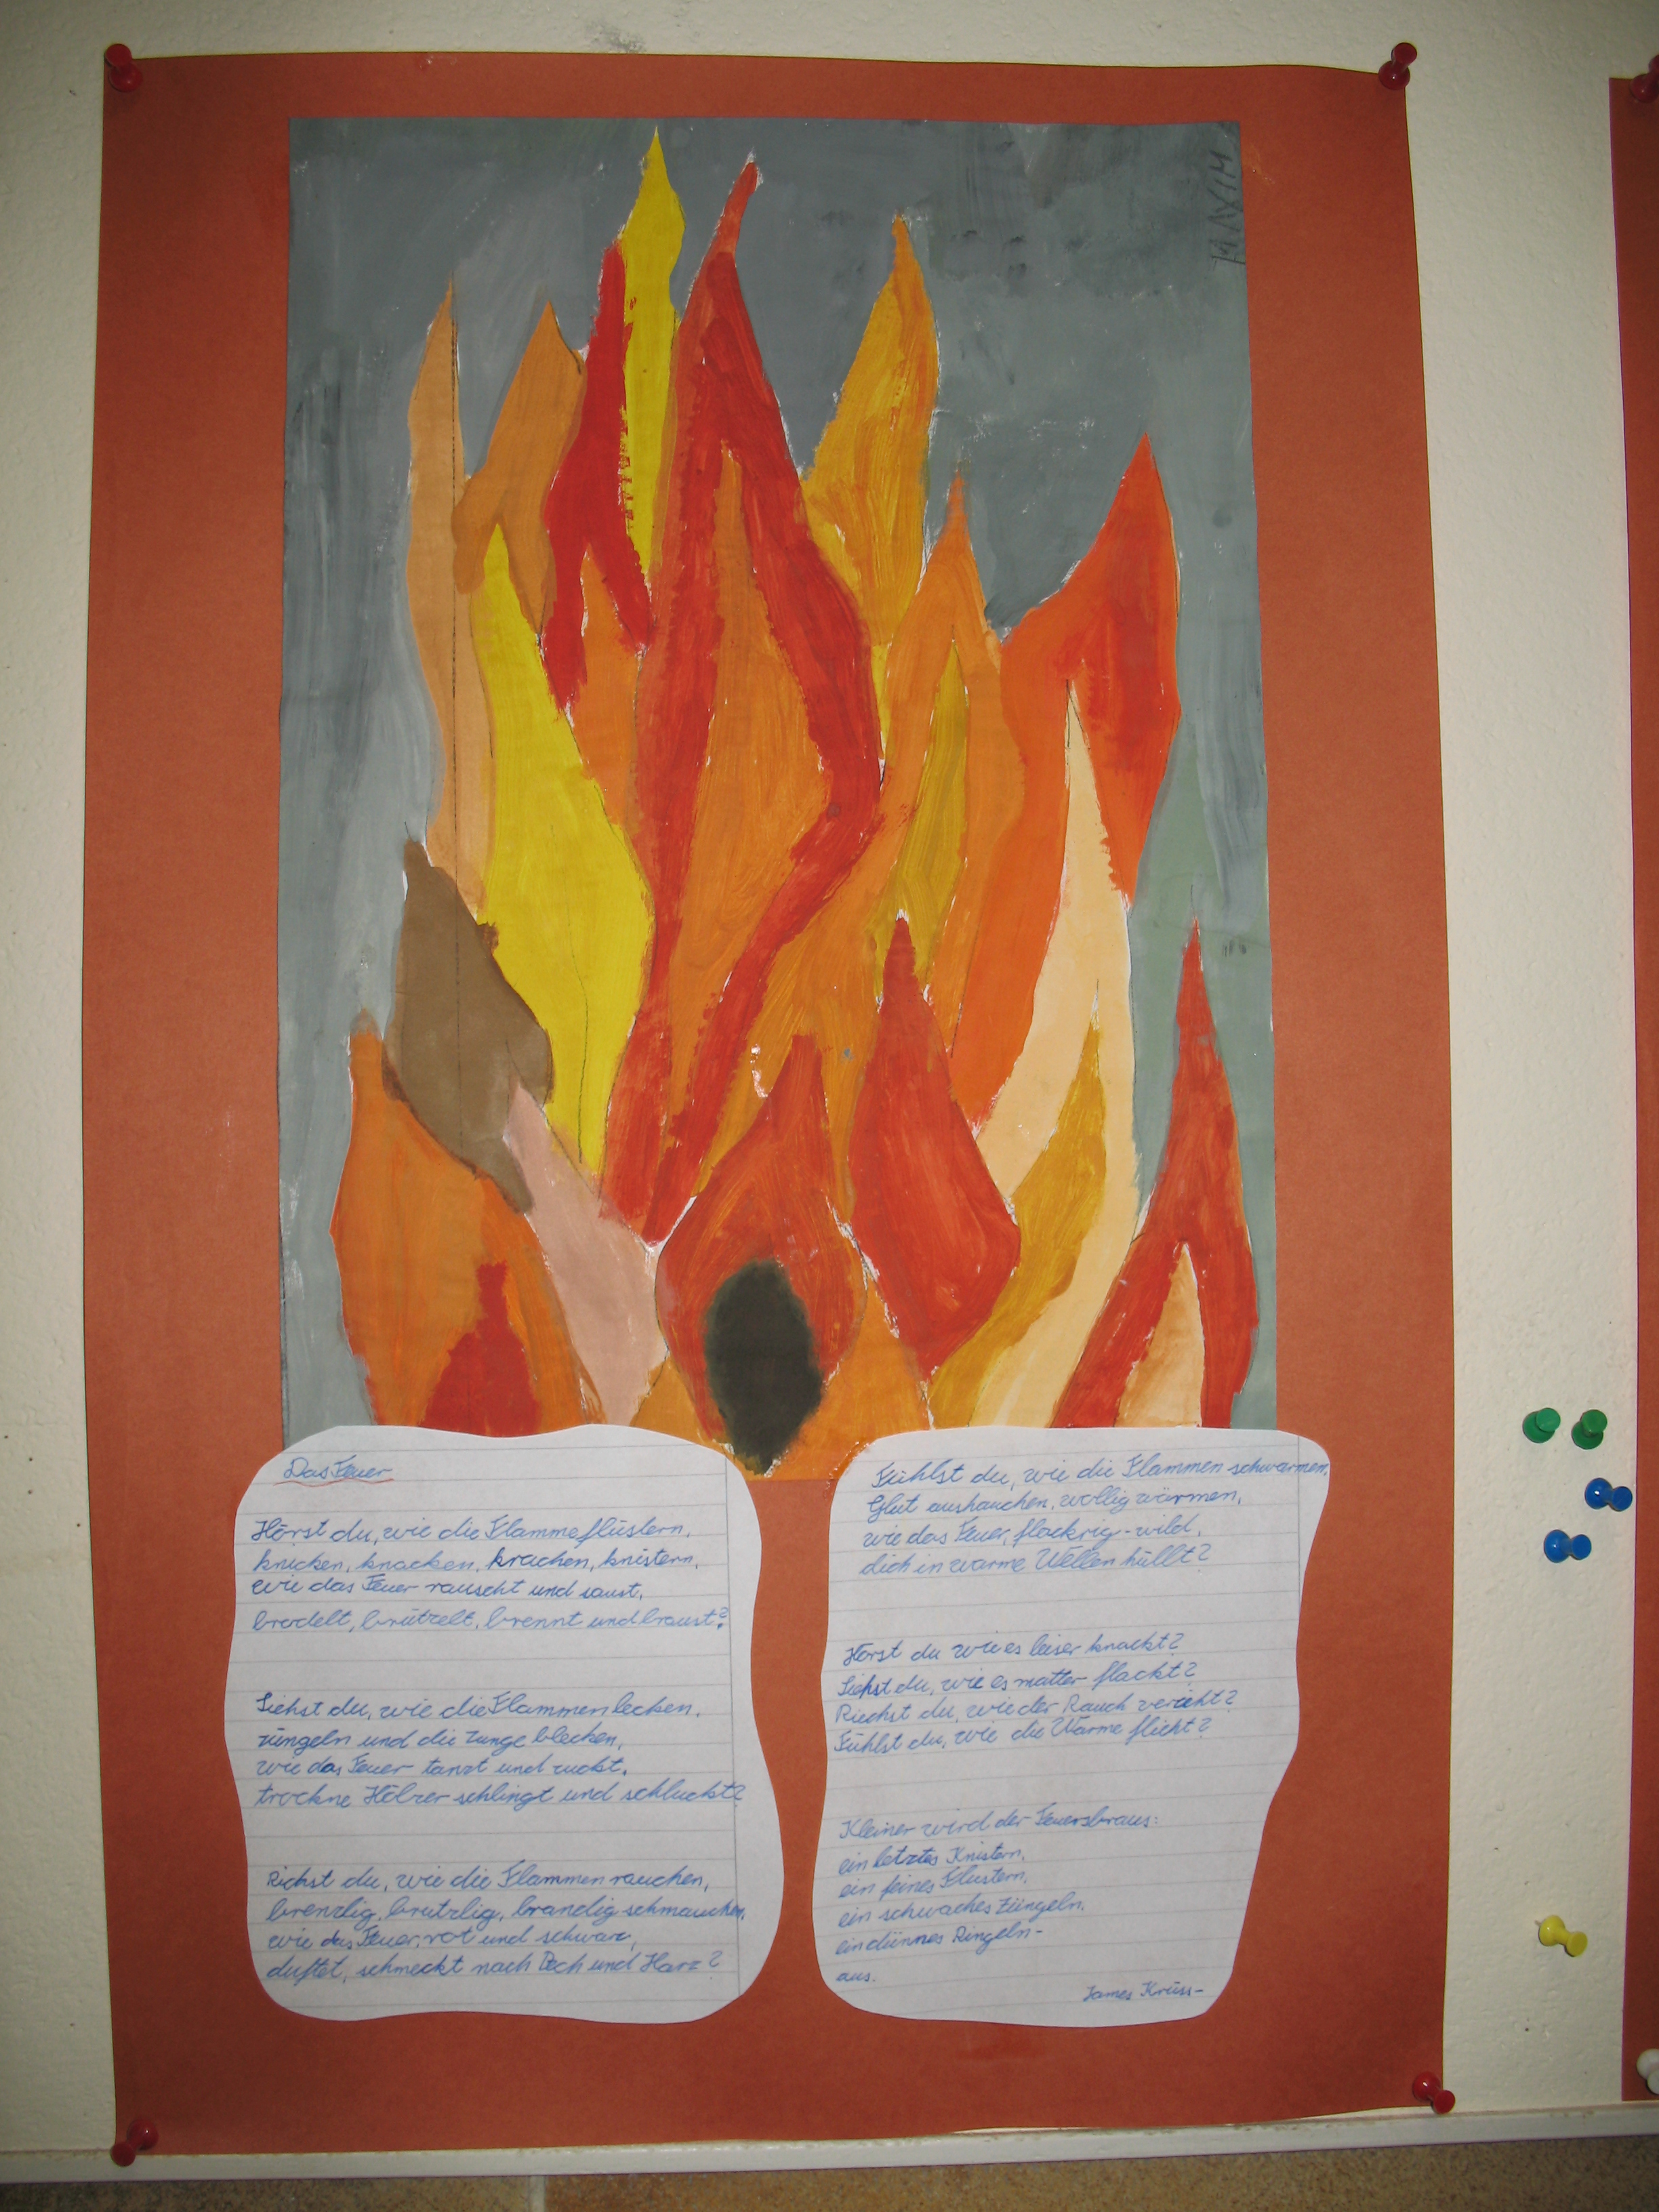 MAXIM
Das Feuer
Hörst du, wie die Flamme flüstern,
knicken, knacken, krachen, knistern,
wie das Feuer rauscht und saust,
brodelt, brutzelt, brennt und braust?
Siehst du, wie die Flammen lecken,
züngeln und die Zunge blecken,
wie das Feuer tanzt und zuckt,
trockne Hölzer schlingt und schluckt?
Richst du, wie die Flammen rauchen,
brenzlig, brutzlig, brandig schmauchen,
wie das Feuer, rot und schwarz,
duftet, schmeckt nach Pech und Harz?
Fühlst du, wie die Flammen schwärmen,
Glut aushauchen, wollig wärmen,
wie das Feuer, flackrig-wild,
dich in warme Wellen hüllt?
Hörst du wie es leiser knackt?
Siehst du, wie es matter flackt?
Riechst du, wie der Rauch verzieht?
Fühlst du, wie die Wärme flieht?
Kleiner wird der Feuersbraus:
ein letztes Knistern,
ein feines Flüstern,
ein schwaches Züngeln,
ein dünnes Ringeln-
aus.
James Krüss-